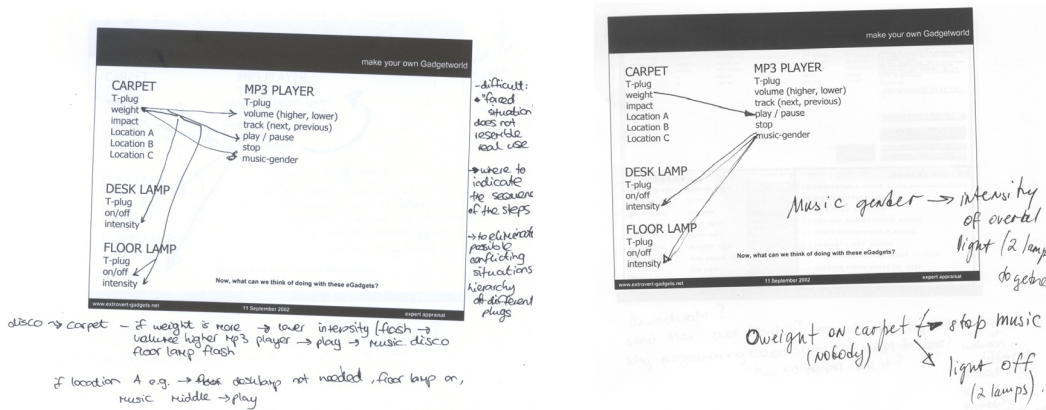 make your own Gadgetworld
CARPET
T-plug
weight
impact
Location A
Location B
Location C
MP3 PLAYER
T-plug
volume (higher, lower)
track (next, previous)
play / pause
stop
music-gender
DESK LAMP
T-plug
on/off
intensity
FLOOR LAMP
T-plug
on/off
intensity
Now, what can we think of doing with these eGadgets?
www.extrovert-gadgets.net
11 September 2002
expert appraisal
- difficult:
situation
does not
resemble
real use
→ where to
indicate
the sequence
of the steps
→ to eliminate
possible
conflicting
situations
hierarchy
of different
plugs
disco → carpet - if weight is more → lower intensity (flash →
volume higher mp3 player → play → music disco
floor lamp flash
if location A e.g. → desklamp not needed, floor lamp on,
music middle → play
make your own Gadgetworld
CARPET
T-plug
weight
impact
Location A
Location B
Location C
MP3 PLAYER
T-plug
volume (higher, lower)
track (next, previous)
play / pause
stop
music-gender
DESK LAMP
T-plug
on/off
intensity
FLOOR LAMP
T-plug
on/off
intensity
Now, what can we think of doing with these eGadgets?
www.extrovert-gadgets.net
11 September 2002
expert appraisal
Music gender → intensity
of overal
light (2 lamp
together
0 weight on carpet → stop music
(nobody)
light off
(2 lamps).